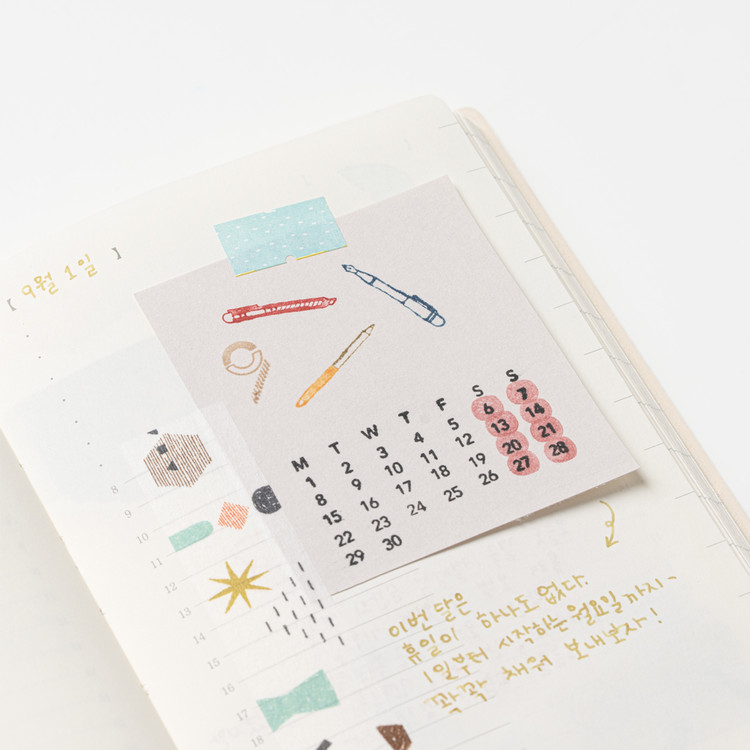 [ 9월 1일 ]
9
M T W T F S S
1 2 3 4 5 6 7
8 9 10 11 12 13 14
15 16 17 18 19 20 21
22 23 24 25 26 27 28
29 30
8
9
10
11
12
13
14
15
16
17
18
이번 달은
휴일이 하나도 없다.
1일부터 시작하는 월요일까지~
꽉꽉 채워 보내보자!